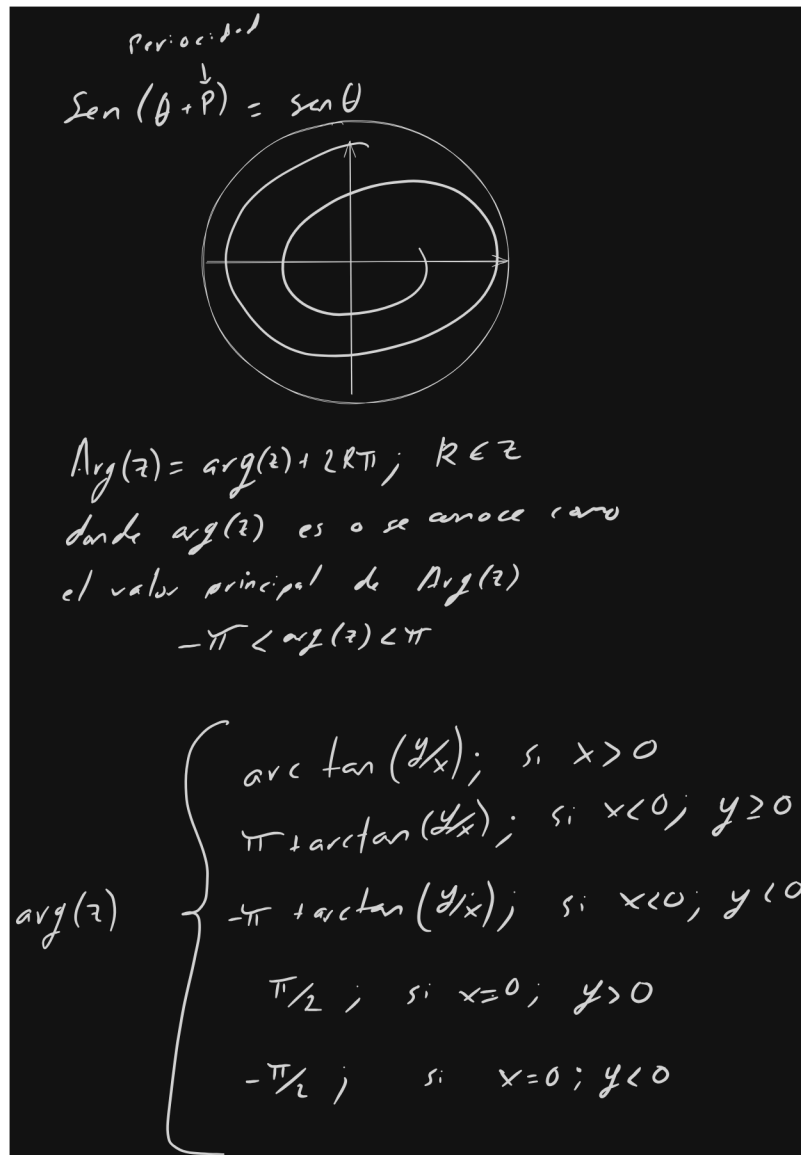 Periocidad
↓
Sen (θ + P) = senθ
Arg(z) = arg(z) + 2kπ; k ∈ Z
donde arg(z) es o se conoce como
el valor principal de Arg(z)
-π < arg(z) < π
arc tan (y/x); si x > 0
π + arctan (y/x); si x<0; y ≥ 0
arg(z) { -π + arctan (y/x); si x<0; y < 0
π/2; si x=0; y > 0
-π/2; si x=0; y < 0